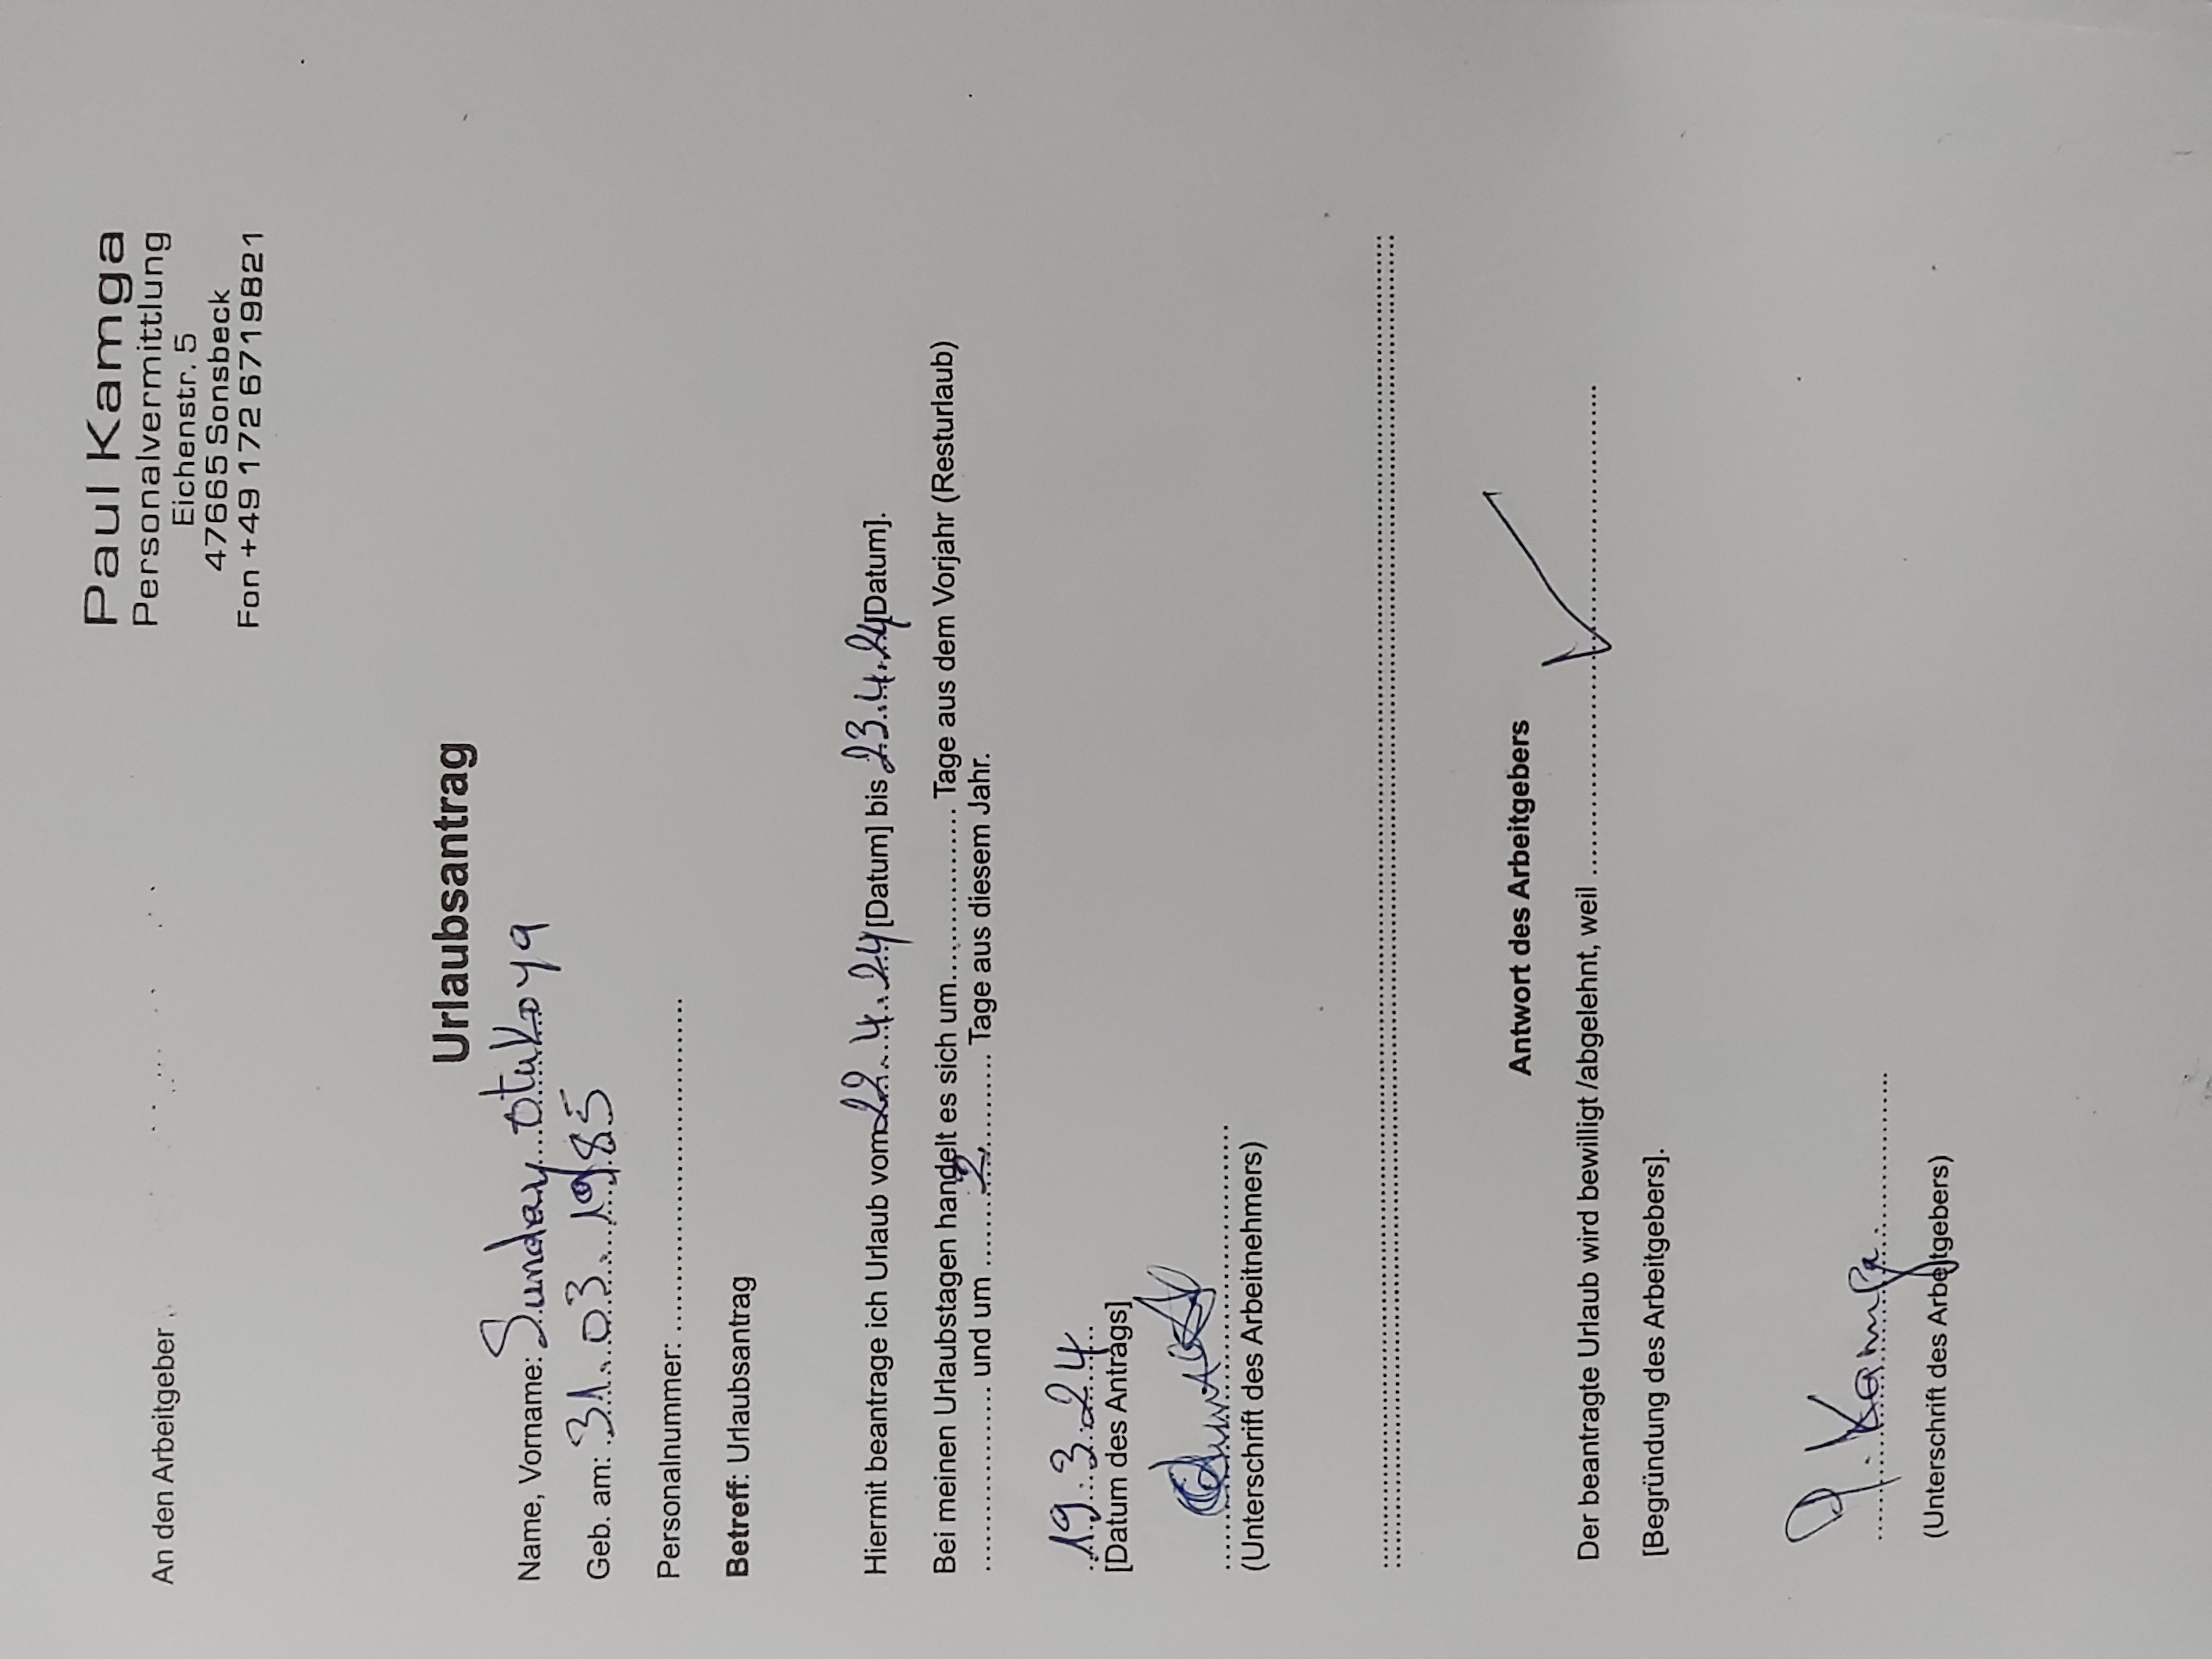 Paul Kamga
Personalvermittlung
Eichenstr. 5
47665 Sonsbeck
Fon +49 172 6719821
An den Arbeitgeber
Urlaubsantrag
Name, Vorname: Sunday Otukoya
Geb. am: 31.03.1985
Personalnummer: ..................................
Betreff: Urlaubsantrag
Hiermit beantrage ich Urlaub vom 22.4.24 [Datum] bis 23.4.24 Datum].
Bei meinen Urlaubstagen handelt es sich um.................. Tage aus dem Vorjahr (Resturlaub)
................... und um ........2.......... Tage aus diesem Jahr.
19.3.24
[Datum des Antrags]
(Unterschrift des Arbeitnehmers)
Antwort des Arbeitgebers
Der beantragte Urlaub wird bewilligt /abgelehnt, weil ........................✓........................
[Begründung des Arbeitgebers].
P. Kamga.
(Unterschrift des Arbeitgebers)